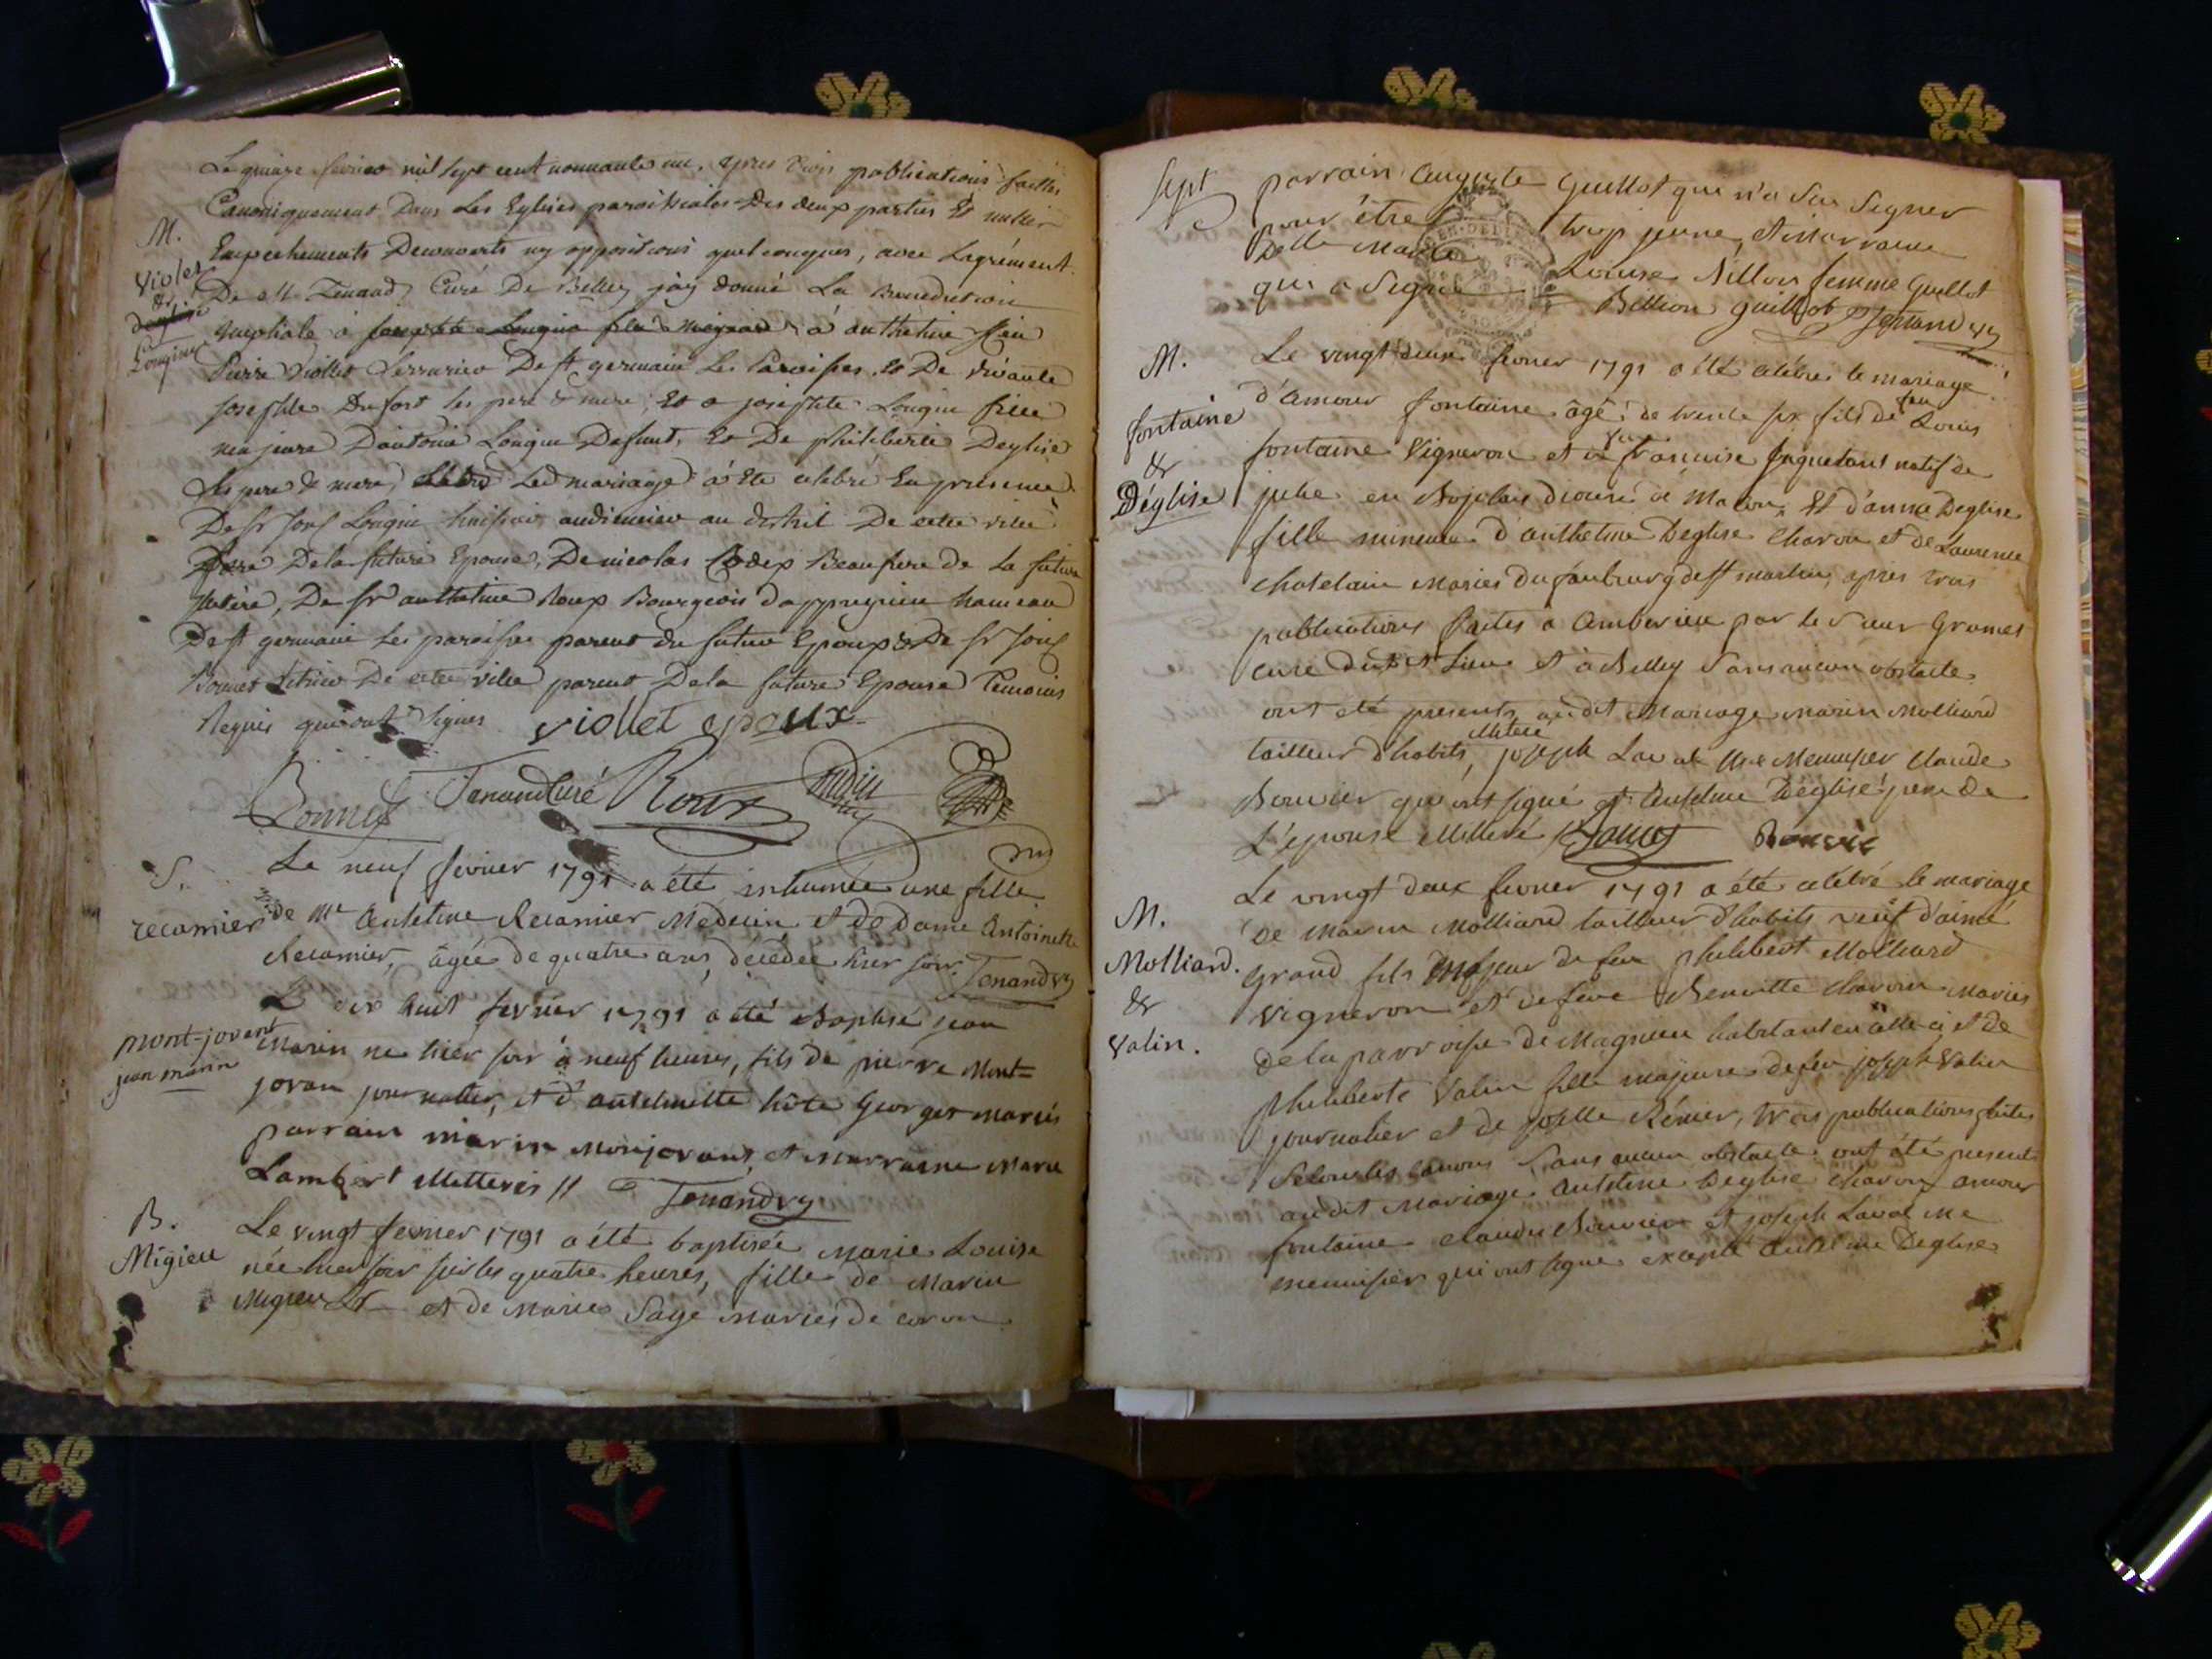 Le quinze fevrier mil sept cent nonnante un, apres trois publications faittes
Canoniquement Dans Les Eglises paroissiales Des deux parties Et nuls
M.
Empechements Decouverts ny oppositions quelconques, avec Lagrément
Violet
&
Longin
De Mr Tenand Curé De Belley jay donné La Benediction
nuptiale à anthelme
Pierre Viollet Serrurier De st germain Les Paroisses, et De vivante
Josephte Dufort ses pere & mere, Et a josephte Longin fille
majeure Dantoine Longin Defunt, Et De philiberte Deglise
ses pere & mere, Led mariage a Ete celebré En presence
De sr Longin huissier audiencier au District De cette ville
De la future Epouse, De nicolas Beaufrere de La future
De sr anthelme Roux Bourgeois hameau
De st germain Les paroisses parent du futur Epoux & De sr
Bonnet De cette ville parent De la future Epouse Temoins
Requis qui ont signes viollet epoux
Bonnet Tenand Curé Roux
S.
recamier
Le neuf fevrier 1791 a été inhumée une fille
de Mr Antelme Recamier Médecin et de Dame Antoinette
Recamier, âgée de quatre ans, décédée hier soir. Tenand
mont-jovent
jean marin
Le dix huit fevrier 1791 a été Baptisé jean
Marin né hier soir à neuf heures, fils de pierre Mont=
jovan journalier, et d'antelmette Georges mariés
parrain marin Monjovant, et Marraine Marie
Lambert illitterés // Tenand
B.
Migieu
Le vingt fevrier 1791 a été baptisée Marie Louise
née hier soir sur les quatre heures, fille de Marin
Migieu et de Marie Sage mariés de coron
sept
parrain Auguste Guillot qui n'a Sçu Signer
pour être trop jeune, et Marraine
Delle Marie Louise Billion femme Guillot
qui a Signé Billion Guillot Tenand
M.
fontaine
&
Déglise
Le vingt deux fevrier 1791 a été célébré le mariage
d'Amour fontaine âgé de trente six fils de feu Louis
fontaine Vigneron et de françoise natif de
en Bojolais diocese de Macon. Et d'anne Deglise
fille mineure d'anthelme Deglise Charon et de Laurence
Chatelain Mariés du faubourg de st martin, apres trois
publications faites a Amberieu par le Sieur Gromet
curé dudit Lieu et à Belley Sans aucun obstacle.
ont été presents audit Mariage Marin Molliard
tailleur d'habits, joseph Laval Me Menuisier Claude
Bouvier qui ont signé et Antelme Déglise père de
L'epouse illitteré Bouvié
M.
Molliard.
&
Valin.
Le vingt deux fevrier 1791 a été célébré le mariage
de Marin Molliard tailleur d'habits veuf d'aimé
Grand fils Majeur de feu philibert Molliard
Vigneron et de feue Benoitte Mariés
de la parroisse de Magnieu habitant en celle ci et de
philiberte Valin fille majeure de feu joseph Valin
journalier et de Rénier, trois publications faites
Selon les canons Sans aucun obstacle ont été presents
audit Mariage Antelme Deglise charon, amour
fontaine claude Bouvier et joseph Laval Me
menuisier qui ont signé excepté Antelme Deglise